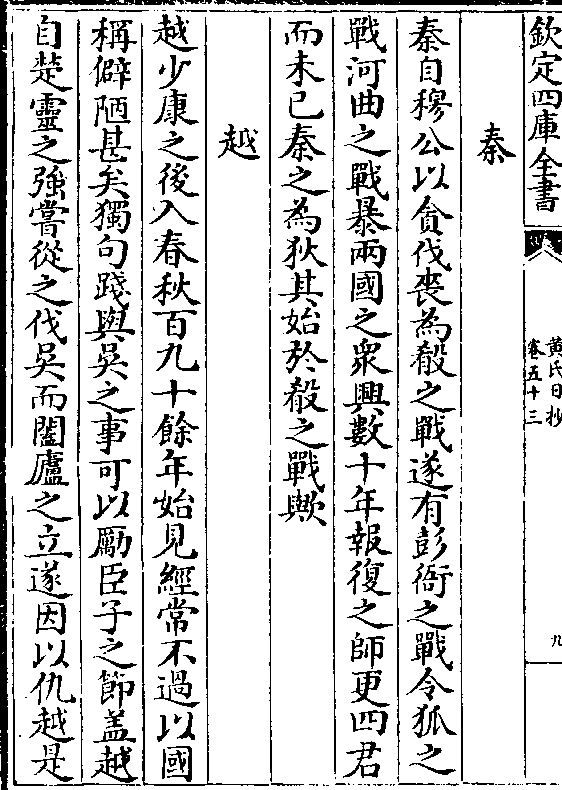 欽定四庫全書
黄氏日抄
卷五十三
九
秦
秦自穆公以貪伐喪為殽之戰遂有彭衙之戰令狐之
戰河曲之戰暴兩國之衆興數十年報復之師更四君
而未已秦之為狄其始於殽之戰歟
越
越少康之後入春秋百九十餘年始見經常不過以國
稱僻陋甚矣獨句踐與吳之事可以勵臣子之節盖越
自楚靈之強嘗從之伐吳而闔廬之立遂因以仇越是